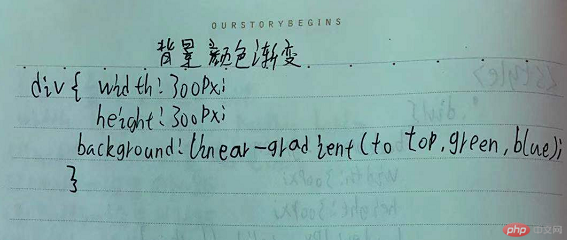 OURSTORYBEGINS
背景颜色渐变
div{ width:300px;
height:300px;
background:linear-gradient(to top,green,blue);
}
php 中文网